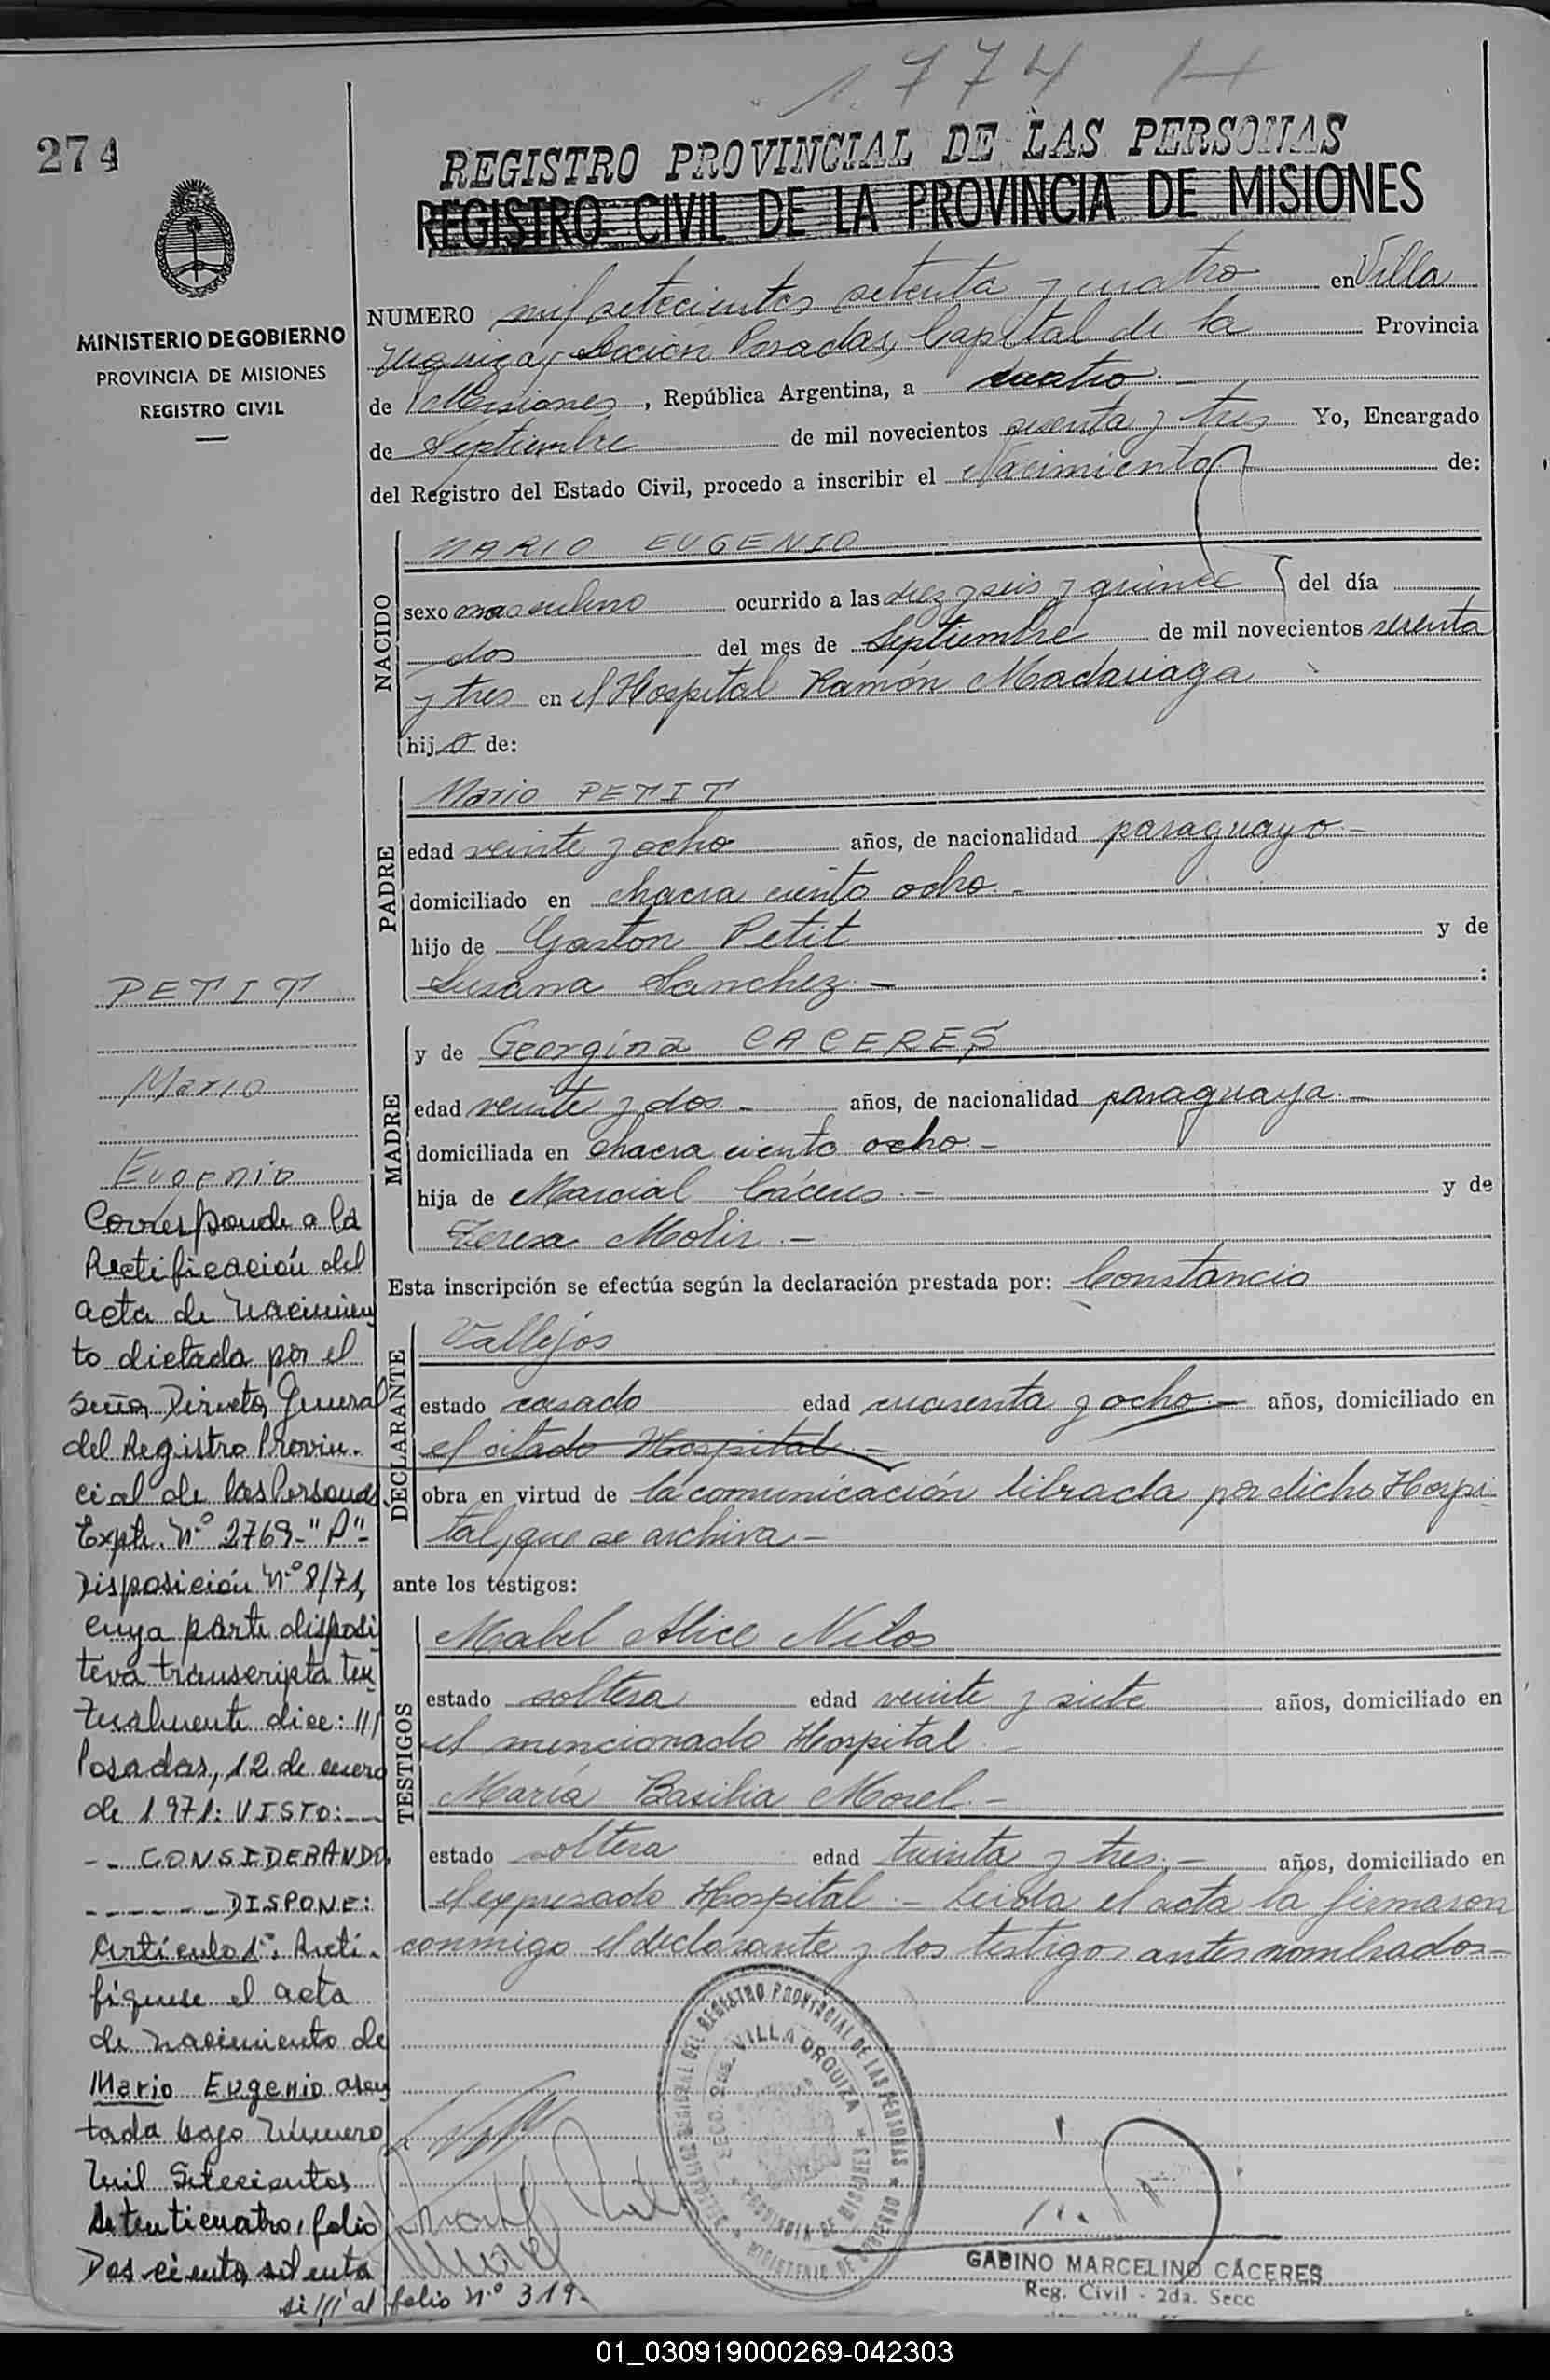 1.774 H
274
REGISTRO PROVINCIAL DE LAS PERSONAS
REGISTRO CIVIL DE LA PROVINCIA DE MISIONES
MINISTERIO DE GOBIERNO
PROVINCIA DE MISIONES
REGISTRO CIVIL
NUMERO mil setecientos setenta y cuatro en Villa
Urquiza, Sección Posadas, Capital de la Provincia
de Misiones, República Argentina, a cuatro.-
de Septiembre de mil novecientos sesenta y tres Yo, Encargado
del Registro del Estado Civil, procedo a inscribir el Nacimiento de:
NACIDO
MARIO EUGENIO
sexo masculino ocurrido a las diez y seis y quince del día
dos del mes de Septiembre de mil novecientos sesenta
y tres en el Hospital Ramón Madariaga
hijo de:
PADRE
Mario PETIT
edad veinte y ocho años, de nacionalidad paraguayo.-
domiciliado en chacra ciento ocho.-
hijo de Gaston Petit y de
Susana Sanchez.- :
MADRE
y de Georgina CACERES
edad veinte y dos.- años, de nacionalidad paraguaya.-
domiciliada en chacra ciento ocho.-
hija de Marcial Cáceres.- y de
Teresa Molir.-
Esta inscripción se efectúa según la declaración prestada por: Constancio
DECLARANTE
Vallejos
estado casado edad cincuenta y ocho.- años, domiciliado en
el citado Hospital.-
obra en virtud de la comunicación librada por dicho Hospi-
tal, que se archiva.-
ante los testigos:
TESTIGOS
Mabel Alice Nilos
estado soltera edad veinte y siete años, domiciliado en
el mencionado Hospital.-
María Basilia Morel.-
estado soltera edad treinta y tres.- años, domiciliado en
el expresado Hospital.- Leida el acta la firmaron
conmigo el declarante y los testigos antes nombrados-
PETIT
Mario
Eugenio
Corresponde a la
Rectificación del
acta de nacimien
to dictada por el
señor Director General
del Registro Provin-
cial de las Personas
Expte. Nº 2769-"P"-
Disposición Nº 8/71,
cuya parte disposi
tiva transcripta tex
tualmente dice: ///
Posadas, 12 de enero
de 1971: VISTO:---
--CONSIDERANDO,
-------DISPONE:
Artículo 1º. Recti-
fíquese el acta
de nacimiento de
Mario Eugenio asen
tada bajo número
mil setecientos
setenticuatro, folio
Doscientos setenta
si /// al folio Nº 319-
DEL REGISTRO PROVINCIAL DE LAS PERSONAS
VILLA URQUIZA
PROVINCIA DE MISIONES
MINISTERIO DE GOBIERNO
GABINO MARCELINO CÁCERES
Reg. Civil - 2da. Secc
01_030919000269-042303